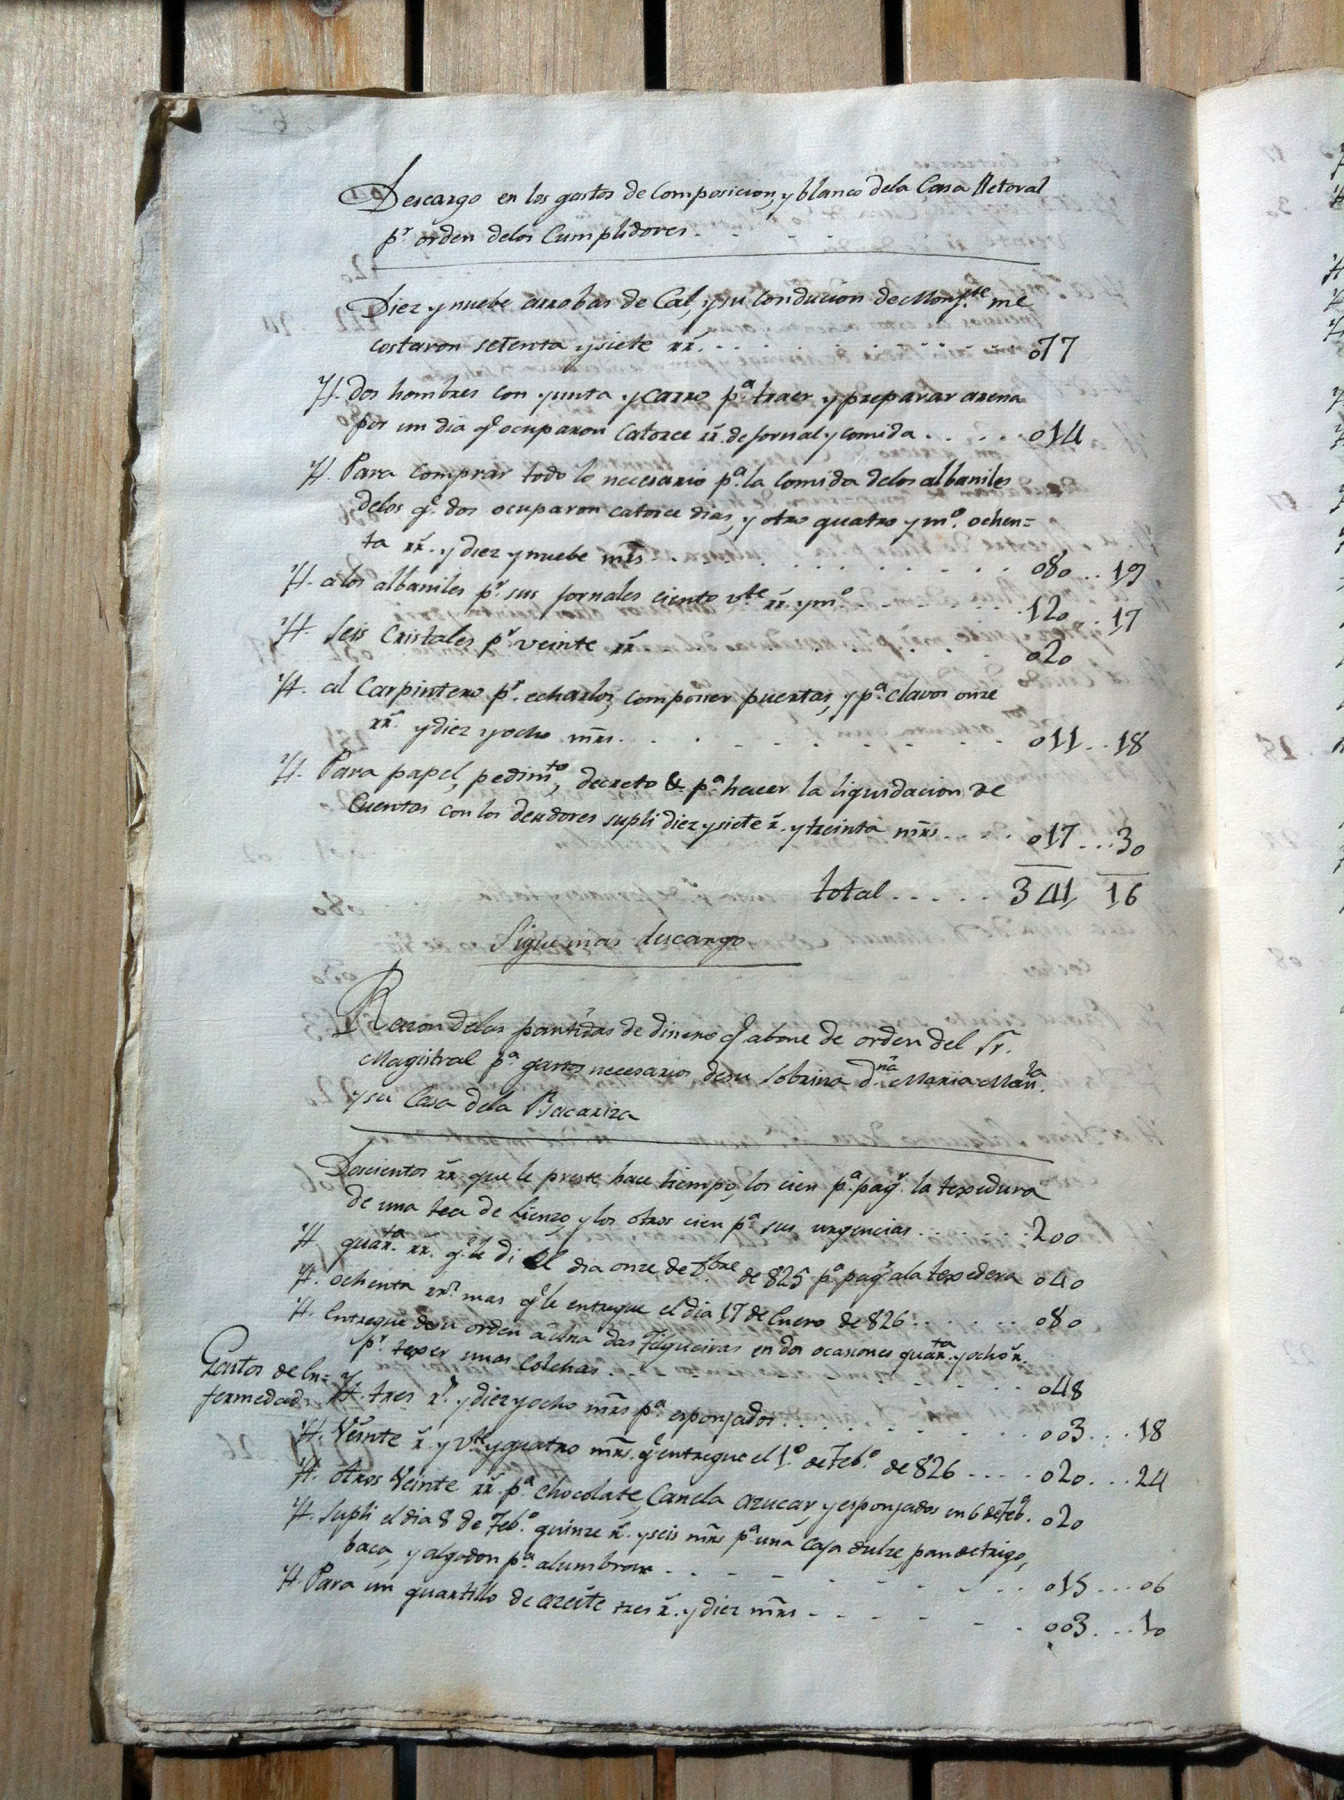 Descargo en los gastos de Composicion, y blanco dela Casa Retoral
pr. orden delos Cumplidores.
Diez y nuebe arrobas de Cal, y su Conducion de Monfte. me
costaron setenta y siete rr. 077
Yt. dos hombres con yunta y carro pa. traer y preparar arena
por un dia q. ocuparon Catorce rr. de jornal y comida 014
Yt. Para comprar todo lo necesario pa. la Comida delos albaniles
delos q. dos ocuparon catorce dias, y otro quatro y mo. ochen=
ta rr. y diez y nuebe mrs. 080 .. 19
Yt. alos albaniles pr. sus jornales ciento vte. rr. y mo. 120 .. 17
Yt. Seis Cristales pr. veinte rr. 020
Yt. al Carpintero pr. echarlos, componer puertas, y pa. clavos onze
rr. y diez y ocho mrs. 011 .. 18
Yt. Para papel, pedimto, decreto & pa. hacer la liquidacion de
Cuentas con los deudores supli diez y siete r. y treinta mrs. 017 ... 30
total 341, 16
Sigue mas descargo
Razon delas partidas de dinero q. abone de orden del Sr.
Magistral pa. gastos necesarios desu Sobrina d.na Maria Manla.
y su Casa dela Bacariza
Doscientos rr. que le preste hace tiempo, los cien pa. pagr. la texedura
de una tea de Lienzo, y los otros cien pa. sus urgencias 200
Yt. quarta. rr. q. le di el dia onze de 8bre de 825 pa. pagr. ala texedera 040
Yt. ochenta rr. mas q. le entregue el dia 17 de Enero de 826 080
Yt. Entregue de su orden a una das Figueiras en dos ocasiones quarta. y ocho r.
pr. texer unas Colchas 048
Gastos de En=
fermedad
Yt. tres r. y diez y ocho mrs pa. esponjados 003 ... 18
Yt. Veinte r. y vte. y quatro mrs. q. entregue el 1o. de Febo. de 826 020 ... 24
Yt. otros Veinte rr. pa. chocolate, Canela azucar, y esponjados en 6 de Febo. 020
Yt. supli el dia 8 de Febo. quinze r. y seis mrs pa. una Caja dulze, pan de trigo,
baca, y algodon pa. alumbrar 015 ... 06
Yt. Para un quartillo de azeite tres r. y diez mrs 003 ... 10